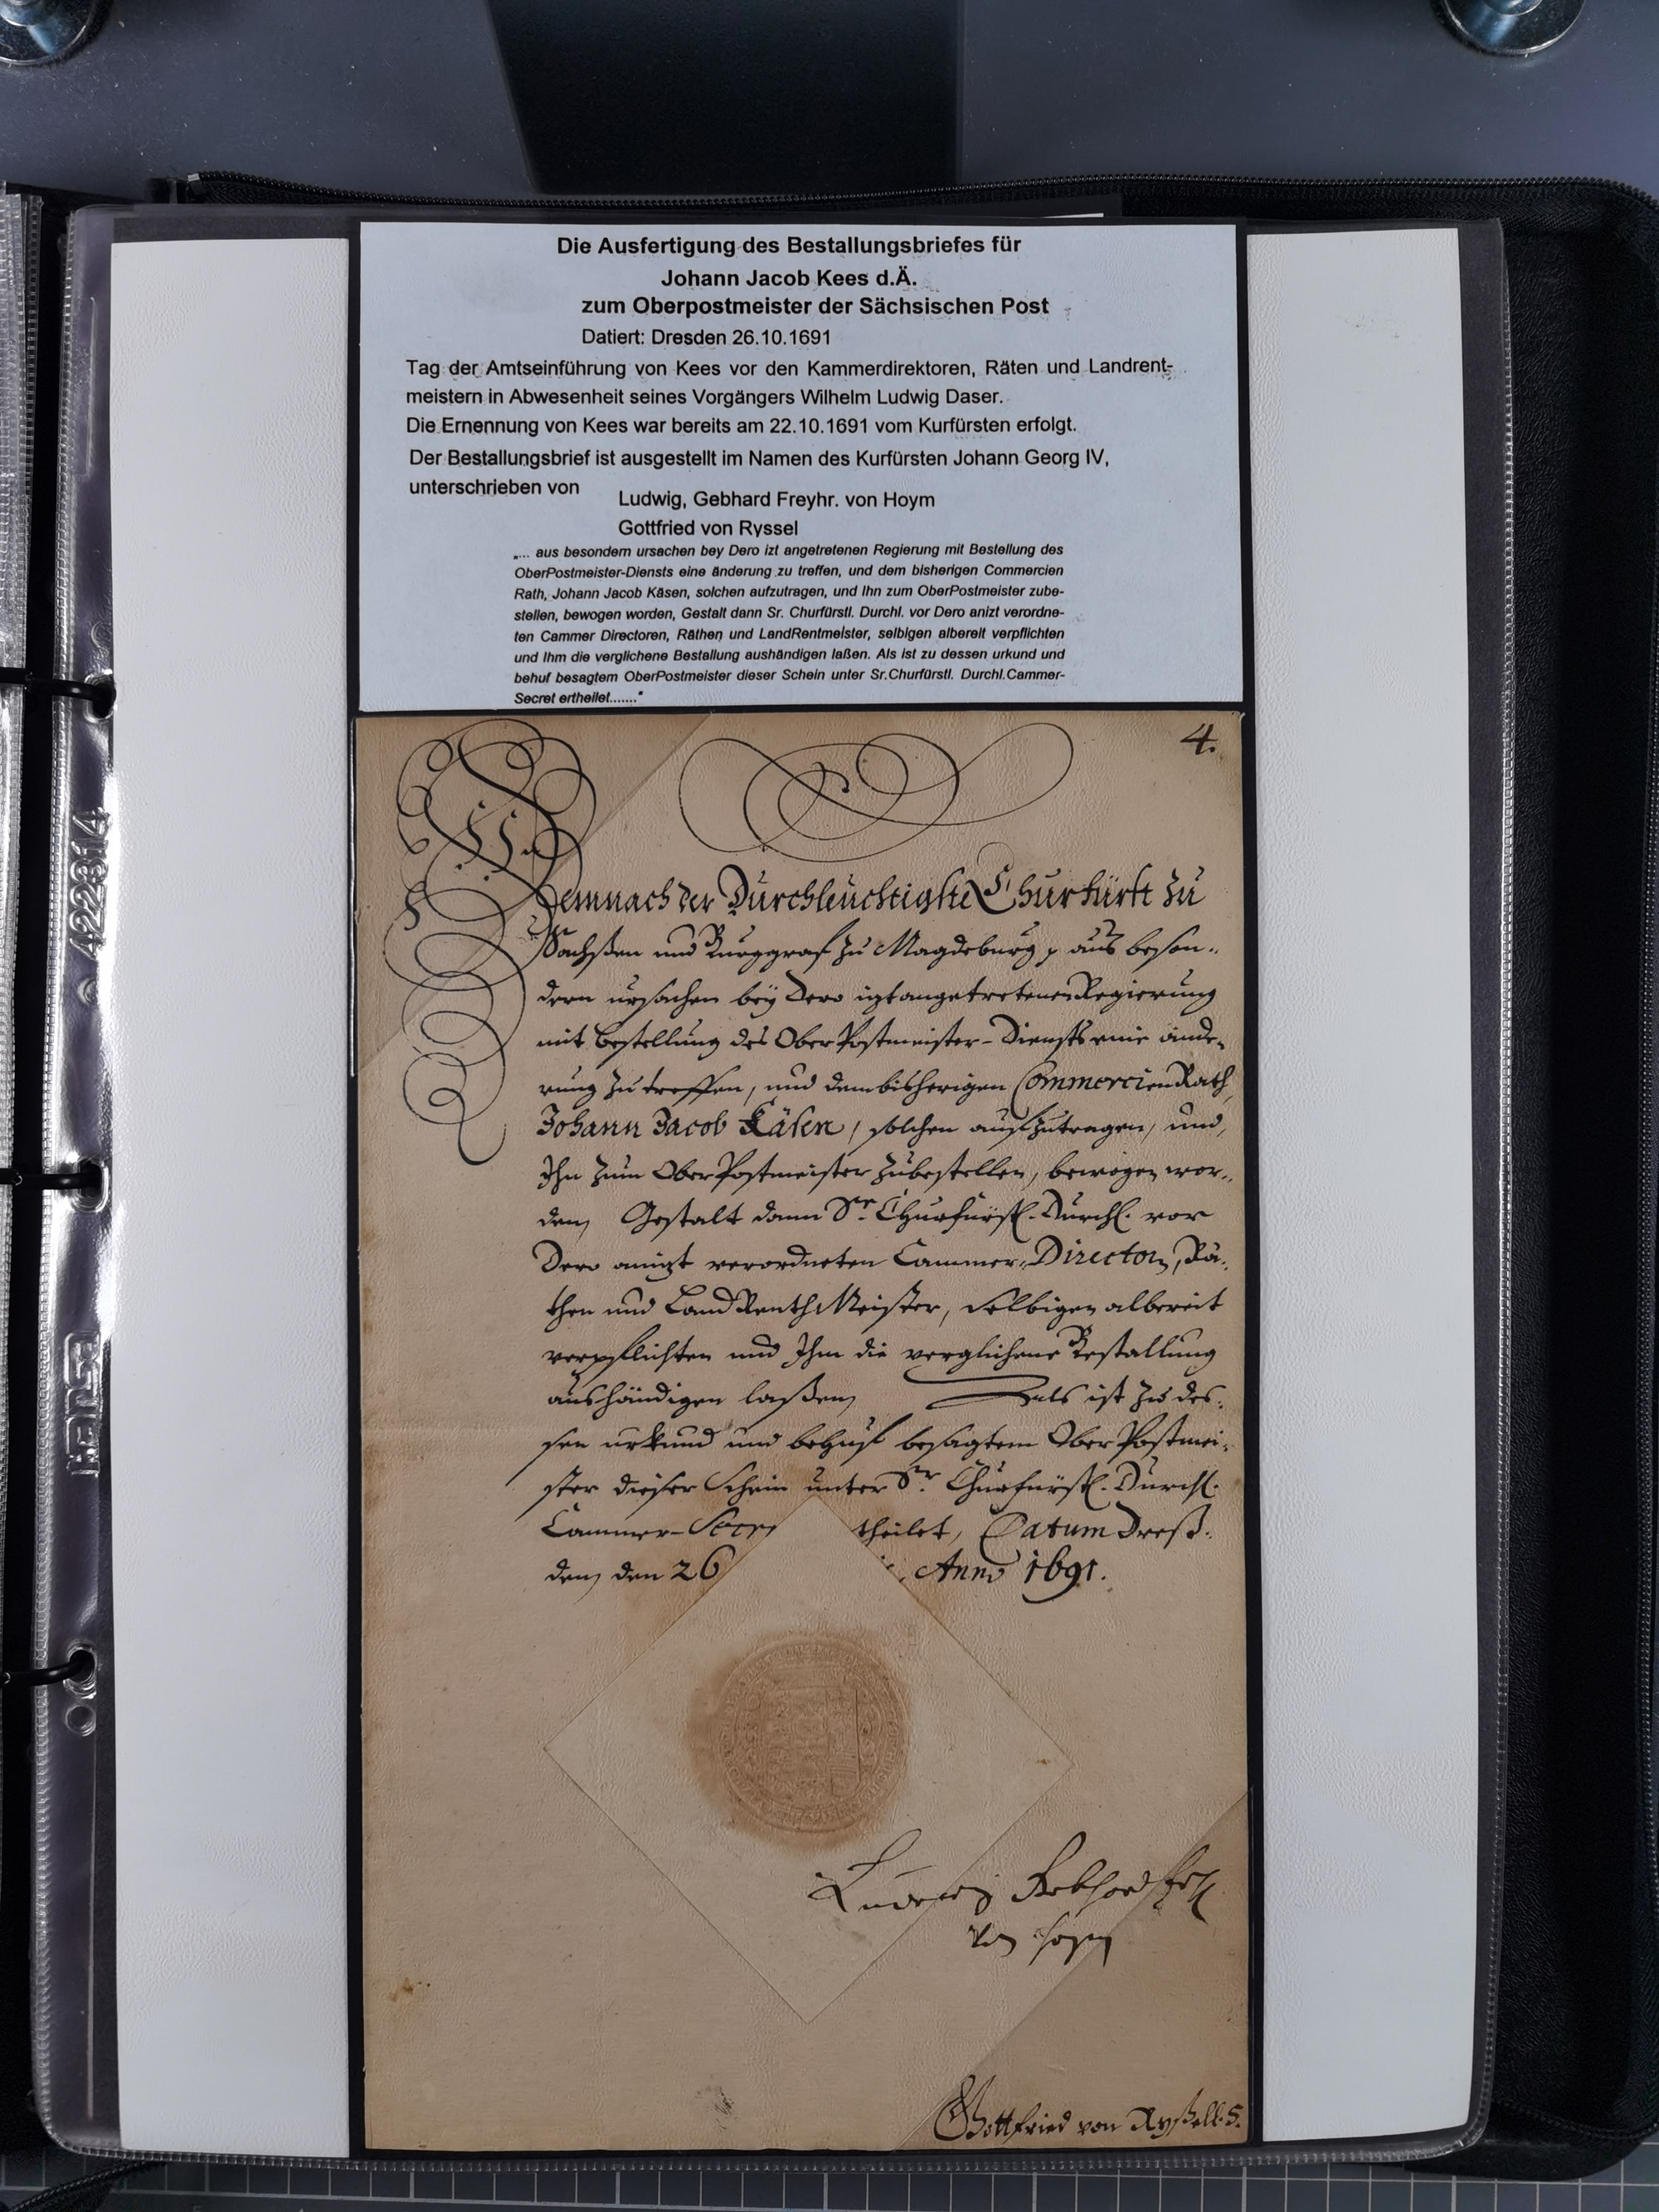 Die Ausfertigung des Bestallungsbriefes für
Johann Jacob Kees d.Ä.
zum Oberpostmeister der Sächsischen Post
Datiert: Dresden 26.10.1691
Tag der Amtseinführung von Kees vor den Kammerdirektoren, Räten und Landrent-
meistern in Abwesenheit seines Vorgängers Wilhelm Ludwig Daser.
Die Ernennung von Kees war bereits am 22.10.1691 vom Kurfürsten erfolgt.
Der Bestallungsbrief ist ausgestellt im Namen des Kurfürsten Johann Georg IV,
unterschrieben von
Ludwig, Gebhard Freyhr. von Hoym
Gottfried von Ryssel
„... aus besondern ursachen bey Dero izt angetretenen Regierung mit Bestellung des
OberPostmeister-Diensts eine änderung zu treffen, und dem bisherigen Commercien
Rath, Johann Jacob Käsen, solchen aufzutragen, und Ihn zum OberPostmeister zube-
stellen, bewogen worden, Gestalt dann Sr. Churfürstl. Durchl. vor Dero anizt verordne-
ten Cammer Directoren, Räthen und LandRentmeister, selbigen albereit verpflichten
und Ihm die verglichene Bestallung aushändigen laßen. Als ist zu dessen urkund und
behuf besagtem OberPostmeister dieser Schein unter Sr.Churfürstl. Durchl.Cammer-
Secret ertheilet.......“
4.
Demnach der Durchleuchtigste Churfürst zu
Sachßen und Burggraf zu Magdeburg p aus beson-
dern ursachen bey Dero izt angetretenen Regierung
mit Bestellung des OberPostmeister-Diensts eine ände-
rung zu treffen, und dem bisherigen Commercien Rath,
Johann Jacob Käsen, solchen aufzutragen, und
Ihn zum OberPostmeister zubestellen, bewogen wor-
den, Gestalt dann Sr. Churfürstl. Durchl. vor
Dero anizt verordneten Cammer-Directorn, Rä-
then und LandRenthMeister, selbigen albereit
verpflichten und Ihm die verglichene Bestallung
aushändigen laßen, Als ist zu des-
sen urkund und behuf besagtem OberPostmei-
ster dieser Schein unter Sr. Churfürstl. Durchl.
Cammer-Secre theilet, Datum Dreß-
den, den 26 Anno 1691.
Ludewig Gebhard Frh
von Hoym
Gottfried von Ryßell. S.
422314
HAMA